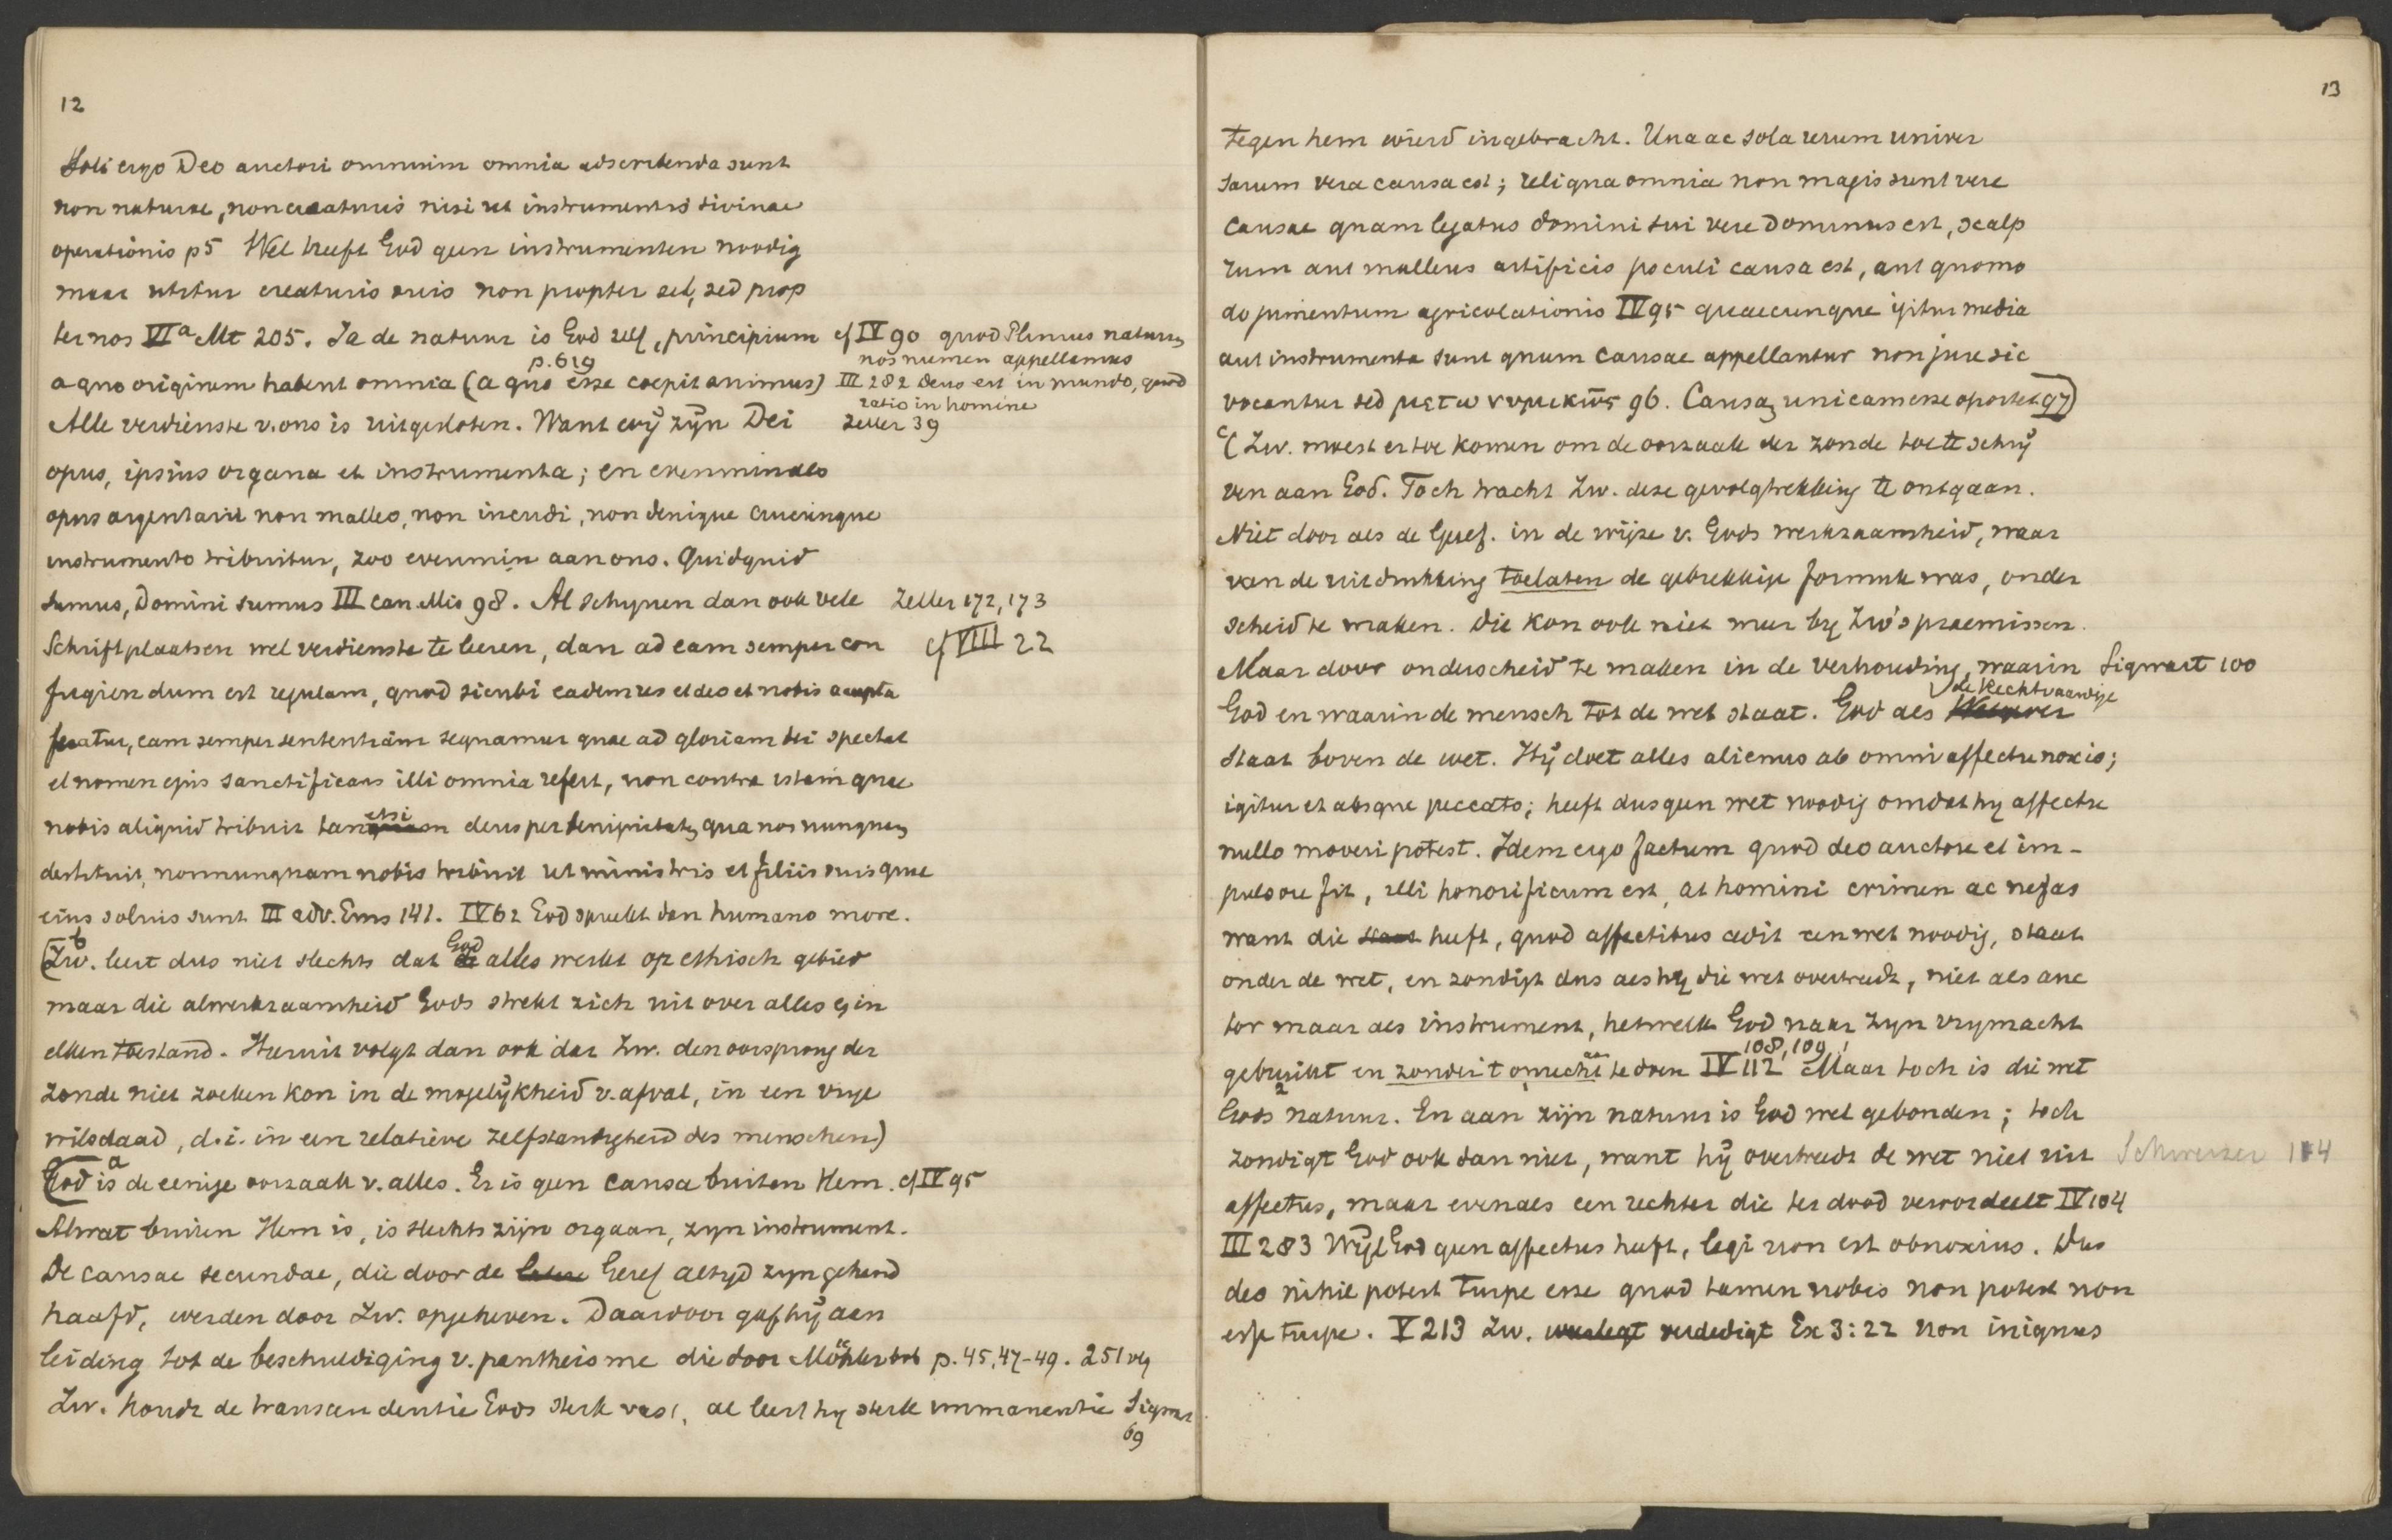 12
Soli ergo Deo auctori omnium omnia adscribenda sunt
non naturae, non creaturis nisi ut instrumentis divinae
operationis p5 Wel heeft God geen instrumenten noodig
maar utitur creaturis suis non propter se, sed prop
ter nos VIa Mt 205. Ja de natuur is God zelf, principium
cf IV 90 quod Plinius naturam
nos numen appellamus
p. 619
a quo originem habent omnia (a quo esse coepit animus)
III 282 Deus est in mundo, quod
ratio in homine
Alle verdienste v. ons is uitgesloten. Want wij zijn Dei
Zeller 39
opus, ipsius organa et instrumenta; en evenmin als
opus argentarii non malleo, non incudi, non denique cuicunque
instrumento tribuitur, zoo evenmin aan ons. Quidquid
sumus, Domini sumus III can. Mis 98. Al schynen dan ook vele
Zeller 172, 173
Schriftplaatsen wel verdienste te leeren, dan ad eam semper con
cf VIII 22
fugiendum est regulam, quod sicubi eadem res et deo et nobis accepta
feratur, eam semper sententiam sequamur quae ad gloriam dei spectat
et nomen ejus sanctificans illi omnia refert, non contra istam quae
nobis aliquid tribuit tam etsi deus per benignitatem qua nos nunquam
destituit, nonnunquam nobis tribuit ut ministris et filiis suis quae
eius solius sunt III adv. Ems 141. IV 62 God spreekt dan humano more.
b
(Zw. leert dus niet slechts dat God alles werkt op ethisch gebied
maar die alwerkzaamheid Gods strekt zich uit over alles & in
elken toestand. Hieruit volgt dan ook dat Zw. den oorsprong der
zonde niet zoeken kon in de mogelijkheid v. afval, in een vrije
wilsdaad, d.i. in een relatieve zelfstandigheid des menschen)
a
God is de eenige oorzaak v. alles. Er is geen causa buiten Hem. cf IV 95
Alwat buiten Hem is, is slechts zijn orgaan, zyn instrument.
De causae secundae, die door de Geref altyd zyn gehand
haafd, werden door Zw. opgeheven. Daardoor gaf hij aan
leiding tot de beschuldiging v. pantheisme die door Möhler ook p. 45, 47-49. 251 vlg
Zw. houdt de transcendentie Gods sterk vast, al leert hy sterk immanentie Sigwart
69
13
tegen hem wierd ingebracht. Una ac sola rerum univer
sarum vera causa est; reliqua omnia non magis sunt vere
causae quam legatus domini sui vere Dominus est, scalp
rum aut malleus artificis poculi causa est, aut quomo
do jumentum agricolationis IV 95 quaecunque igitur media
aut instrumenta sunt quum causae appellantur non jure sic
vocantur sed μετωνυμικως 96. Causam unicam esse oportet 97)
c
(Zw. moest er toe komen om de oorzaak der zonde toe te schrij
ven aan God. Toch tracht Zw. deze gevolgtrekking te ontgaan.
Niet door als de Geref. in de wijze v. Gods werkzaamheid, waar
van de uitdrukking toelaten de gebrekkige formule was, onder
scheid te maken. Die kon ook niet meer by Zw's praemissen.
Maar door onderscheid te maken in de verhouding, waarin
Sigwart 100
God en waarin de mensch tot de wet staat. God als de Rechtvaardige
staat boven de wet. Hij doet alles alienus ab omni affectu noxio;
igitur et absque peccato; heeft dus geen wet noodig omdat hy affectu
nullo moveri potest. Idem ergo factum quod deo auctore et im-
pulsore fit, illi honorificum est, at homini crimen ac nefas
want die heeft, quod affectibus cedit een wet noodig, staat
onder de wet, en zondigt dus als hy die wet overtreedt, niet als auc
tor maar als instrument, hetwelk God naar zyn vrymacht
gebruikt en zonder 't onrecht aan te doen IV 112 108, 109 Maar toch is die wet
Gods natuur. En aan zijn natuur is God wel gebonden; toch
zondigt God ook dan niet, want hij overtreedt de wet niet uit
Schweizer 114
affectus, maar evenals een rechter die ter dood veroordeelt IV 104
III 283 Wijl God geen affectus heeft, legi non est obnoxius. Dus
deo nihil potest turpe esse quod tamen nobis non potest non
esse turpe. V 213 Zw. verdedigt Ex 3:22 non iniquus